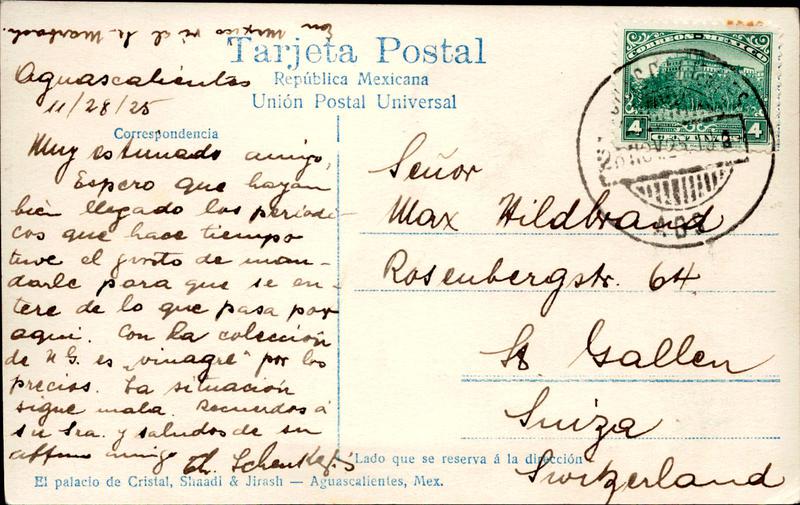 En Mexico vi al Sr.
Tarjeta Postal
República Mexicana
Unión Postal Universal
Aguascalientes
11/28/25
Correspondencia
Muy estimado amigo,
Espero que hayan
bien llegado los periodi-
cos que hace tiempo
tuve el gusto de man-
darle para que se en-
tere de lo que pasa por
aqui. Con la colección
de N G. es „vinagre" por los
precios. La situación
sigue mala. Recuerdos á
su Sra. y saludos de su
affmo amigo Th.
CORREOS-MEXICO
4 CENTAVOS 4
AGS
Señor
Max Hildbrand
Rosenbergstr. 64
St. Gallen
Suiza
Switzerland
Lado que se reserva á la dirección
El palacio de Cristal, Shaadi & Jirash — Aguascalientes, Mex.